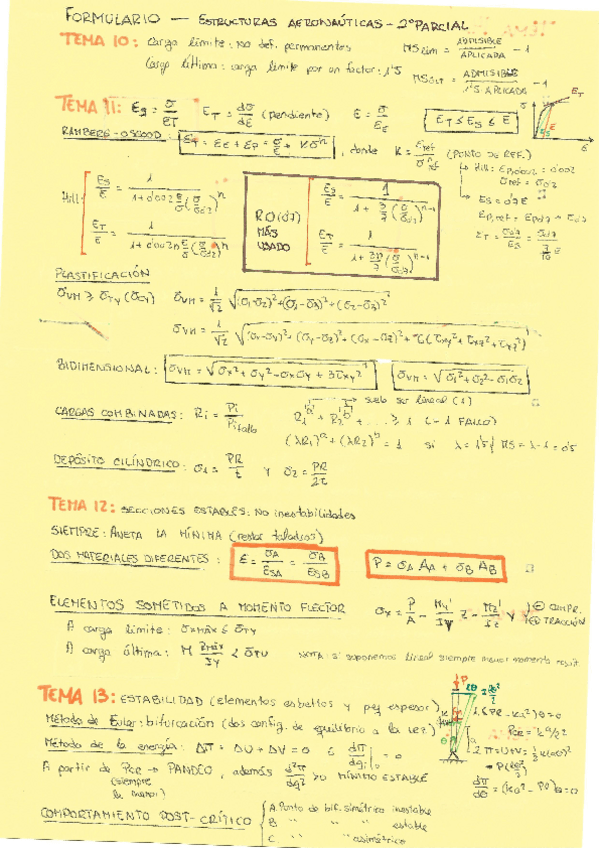 FORMULARIO — ESTRUCTURAS AERONAÚTICAS - 2º PARCIAL
TEMA 10: Carga límite: No def. permanentes MS lim = ADMISIBLE/APLICADA - 1
Carga última: carga límite por un factor: 1'5 MS últ = ADMISIBLE/1'5 APLICADA - 1
TEMA 11: Es = σ/εT ET = dσ/dε (pendiente) E = σ/εE ET ≤ Es ≤ E
RAMBERG-OSGOOD: εT = εE + εP = σ/E + Kσ^n, donde K = εref/σref^n (PUNTO DE REF.)
Hill: EP,0'002 = 0'002
σref = σ0'2
Hill Es/E = 1/(1+0'002 E/σ (σ/σ0'2)^n)
ET/E = 1/(1+0'002n E/σ (σ/σ0'2)^n)
RO(0'7) MÁS USADO
Es/E = 1/(1+3/7 (σ/σ0'7)^n-1)
ET/E = 1/(1+3n/7 (σ/σ0'7)^n-1)
Es = 0'7E
PLASTIFICACIÓN
σVM ≥ σTY (σCY) σVM = 1/√2 √((σ1-σ2)²+(σ1-σ3)²+(σ2-σ3)²)
σVM = 1/√2 √((σx-σy)²+(σy-σz)²+(σx-σz)²+6(τxy²+τxz²+τyz²))
BIDIMENSIONAL: σVM = √(σx²+σy²-σxσy+3τxy²) σVM = √(σ1²+σ2²-σ1σ2)
suele ser lineal (1)
CARGAS COMBINADAS: Ri = Pi/Pi fallo R1^a + R2^b + ... ≥ 1 (-1 FALLO)
(λR1)^a + (λR2)^b = 1 si λ = 1'5 MS = λ-1 = 0'5
DEPÓSITO CILÍNDRICO: σ1 = PR/t y σ2 = PR/2t
TEMA 12: SECCIONES ESTABLES: No inestabilidades
SIEMPRE: A NETA LA MÍNIMA (restar taladros)
DOS MATERIALES DIFERENTES: ε = σA/EsA = σB/EsB P = σA AA + σB AB
ELEMENTOS SOMETIDOS A MOMENTO FLECTOR σx = P/A - My'/Iy z - Mz'/Iz y ⊖ COMPR. ⊕ TRACCIÓN
A carga límite: σx máx ≤ σTY
A carga última: M zmáx/Iy < σTU NOTA: si suponemos lineal siempre menor momento
TEMA 13: ESTABILIDAD (elementos esbeltos y peq espesor)
Método de Euler: bifurcación (dos config. de equilibrio a la vez)
Método de la energía: ΔΠ = ΔU + ΔV = 0 ó dΠ/dqi = 0
A partir de Pcr → PANDEO, además d²Π/dqi² > 0 MÍNIMO ESTABLE
(siempre la menor)
COMPORTAMIENTO POST-CRÍTICO A. Punto de bif. simétrico inestable
B " " " estable
C " " asimétrico